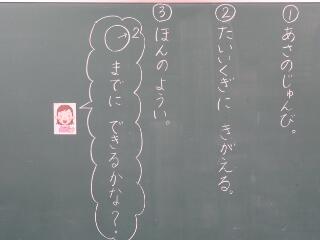 ①あさのじゅんび。
②たいいくぎに きがえる。
③ほんのようい。
2
までに できるかな？